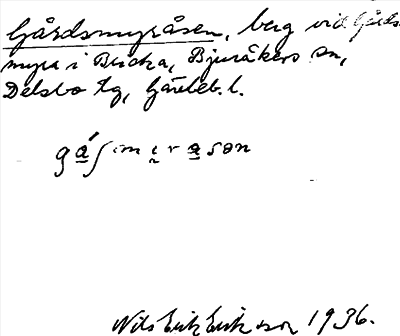 Gårdsmyråsen, berg vid Gårds
myra i Bricka, Bjuråkers sn,
Delsbo tg, Gävleb. l.
Nils Erik Eriksson 1936.